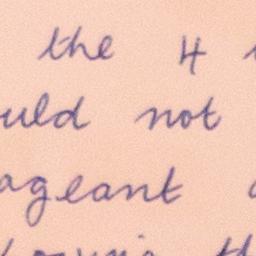 the 4
uld not
ageant